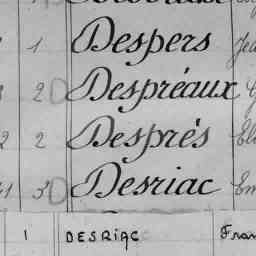 1 Despers Je
2 D Despréaux
2 2 Després El
3 D Desriac Em
1 DESRIAC Fran